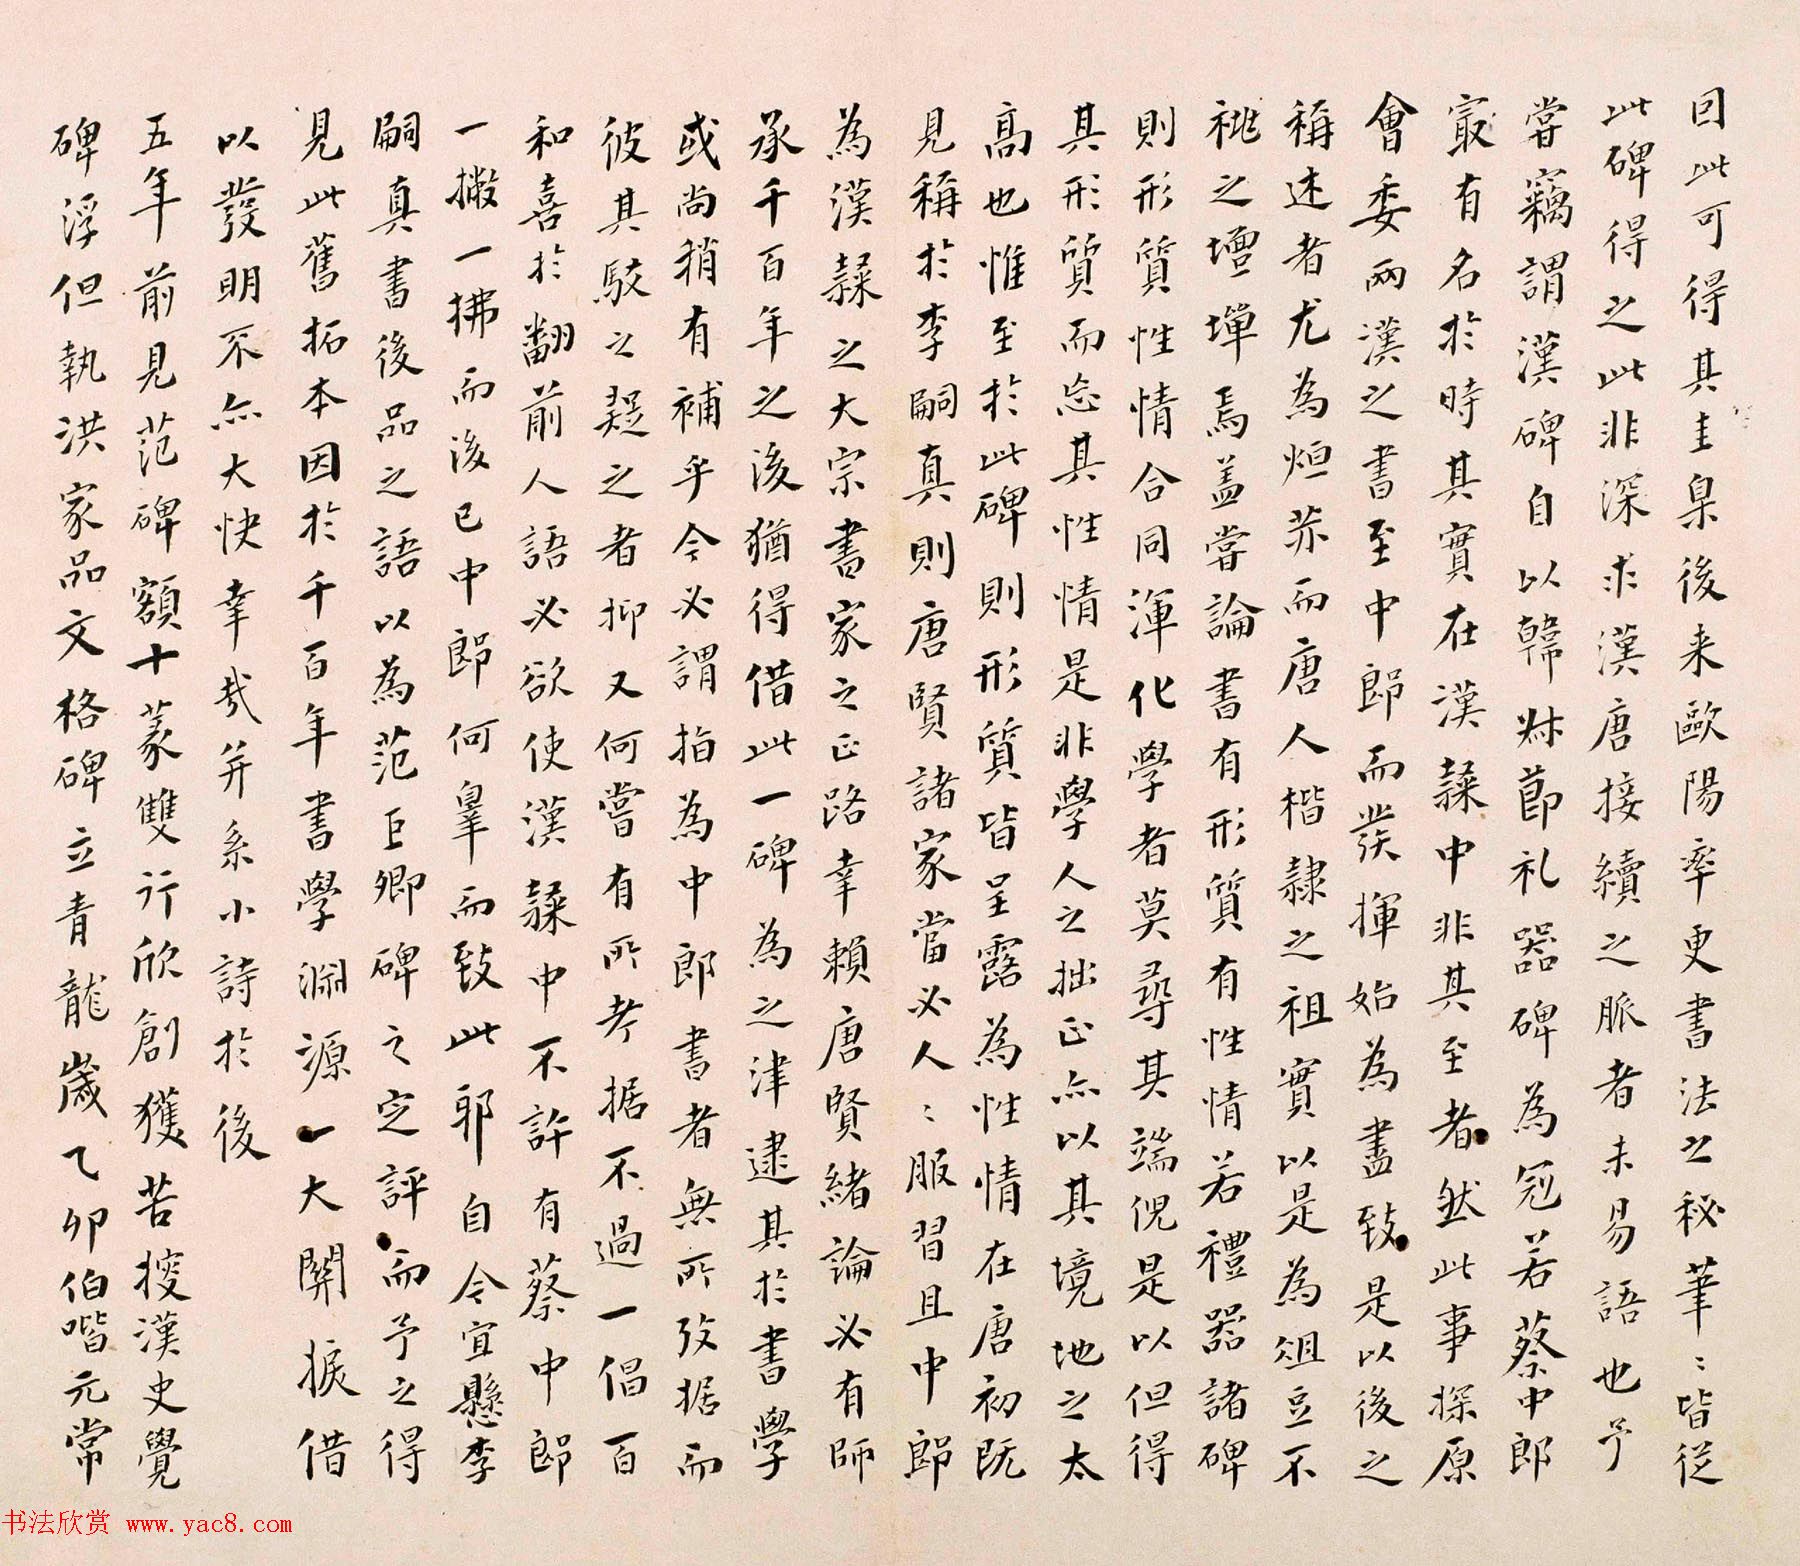 回此可得其圭臬後来歐陽率更書法之秘筆〻皆従
此碑得之此非深求漢唐接續之脈者未易語也予
嘗竊謂漢碑自以韓勑節礼器碑為冠若蔡中郎
冣有名於時其實在漢隸中非其至者然此事探原
會委兩漢之書至中郎而發揮始為盡致是以後之
稱述者尤為烜赤而唐人楷隷之祖實以是為俎豆不
祧之壇墠焉盖嘗論書有形質有性情若禮器諸碑
則形質性情合同渾化學者莫尋其端倪是以但得
其形質而忘其性情是非學人之拙正亦以其境地之太
高也惟至於此碑則形質皆呈露為性情在唐初既
見稱於李嗣真則唐賢諸家當必人〻服習且中郎
為漢隸之大宗書家之正路幸賴唐賢緒論必有師
承千百年之後猶得借此一碑為之津逮其於書學
或尚稍有補乎今必謂指為中郎書者無所攷据而
彼其駁之疑之者抑又何嘗有所考据不過一倡百
和喜於翻前人語必欲使漢隸中不許有蔡中郎
一撇一拂而後已中郎何辜而致此耶自今宜懸李
嗣真書後品之語以為范巨卿碑之定評而予之得
見此舊拓本因於千百年書學淵源一大關捩借
以發明不亦大快幸哉并系小詩於後
五年前見范碑額十篆雙行欣創獲苦搜漢史覺
碑浮但執洪家品文格碑立青龍歲乙卯伯喈元常
书法欣赏 www.yac8.com